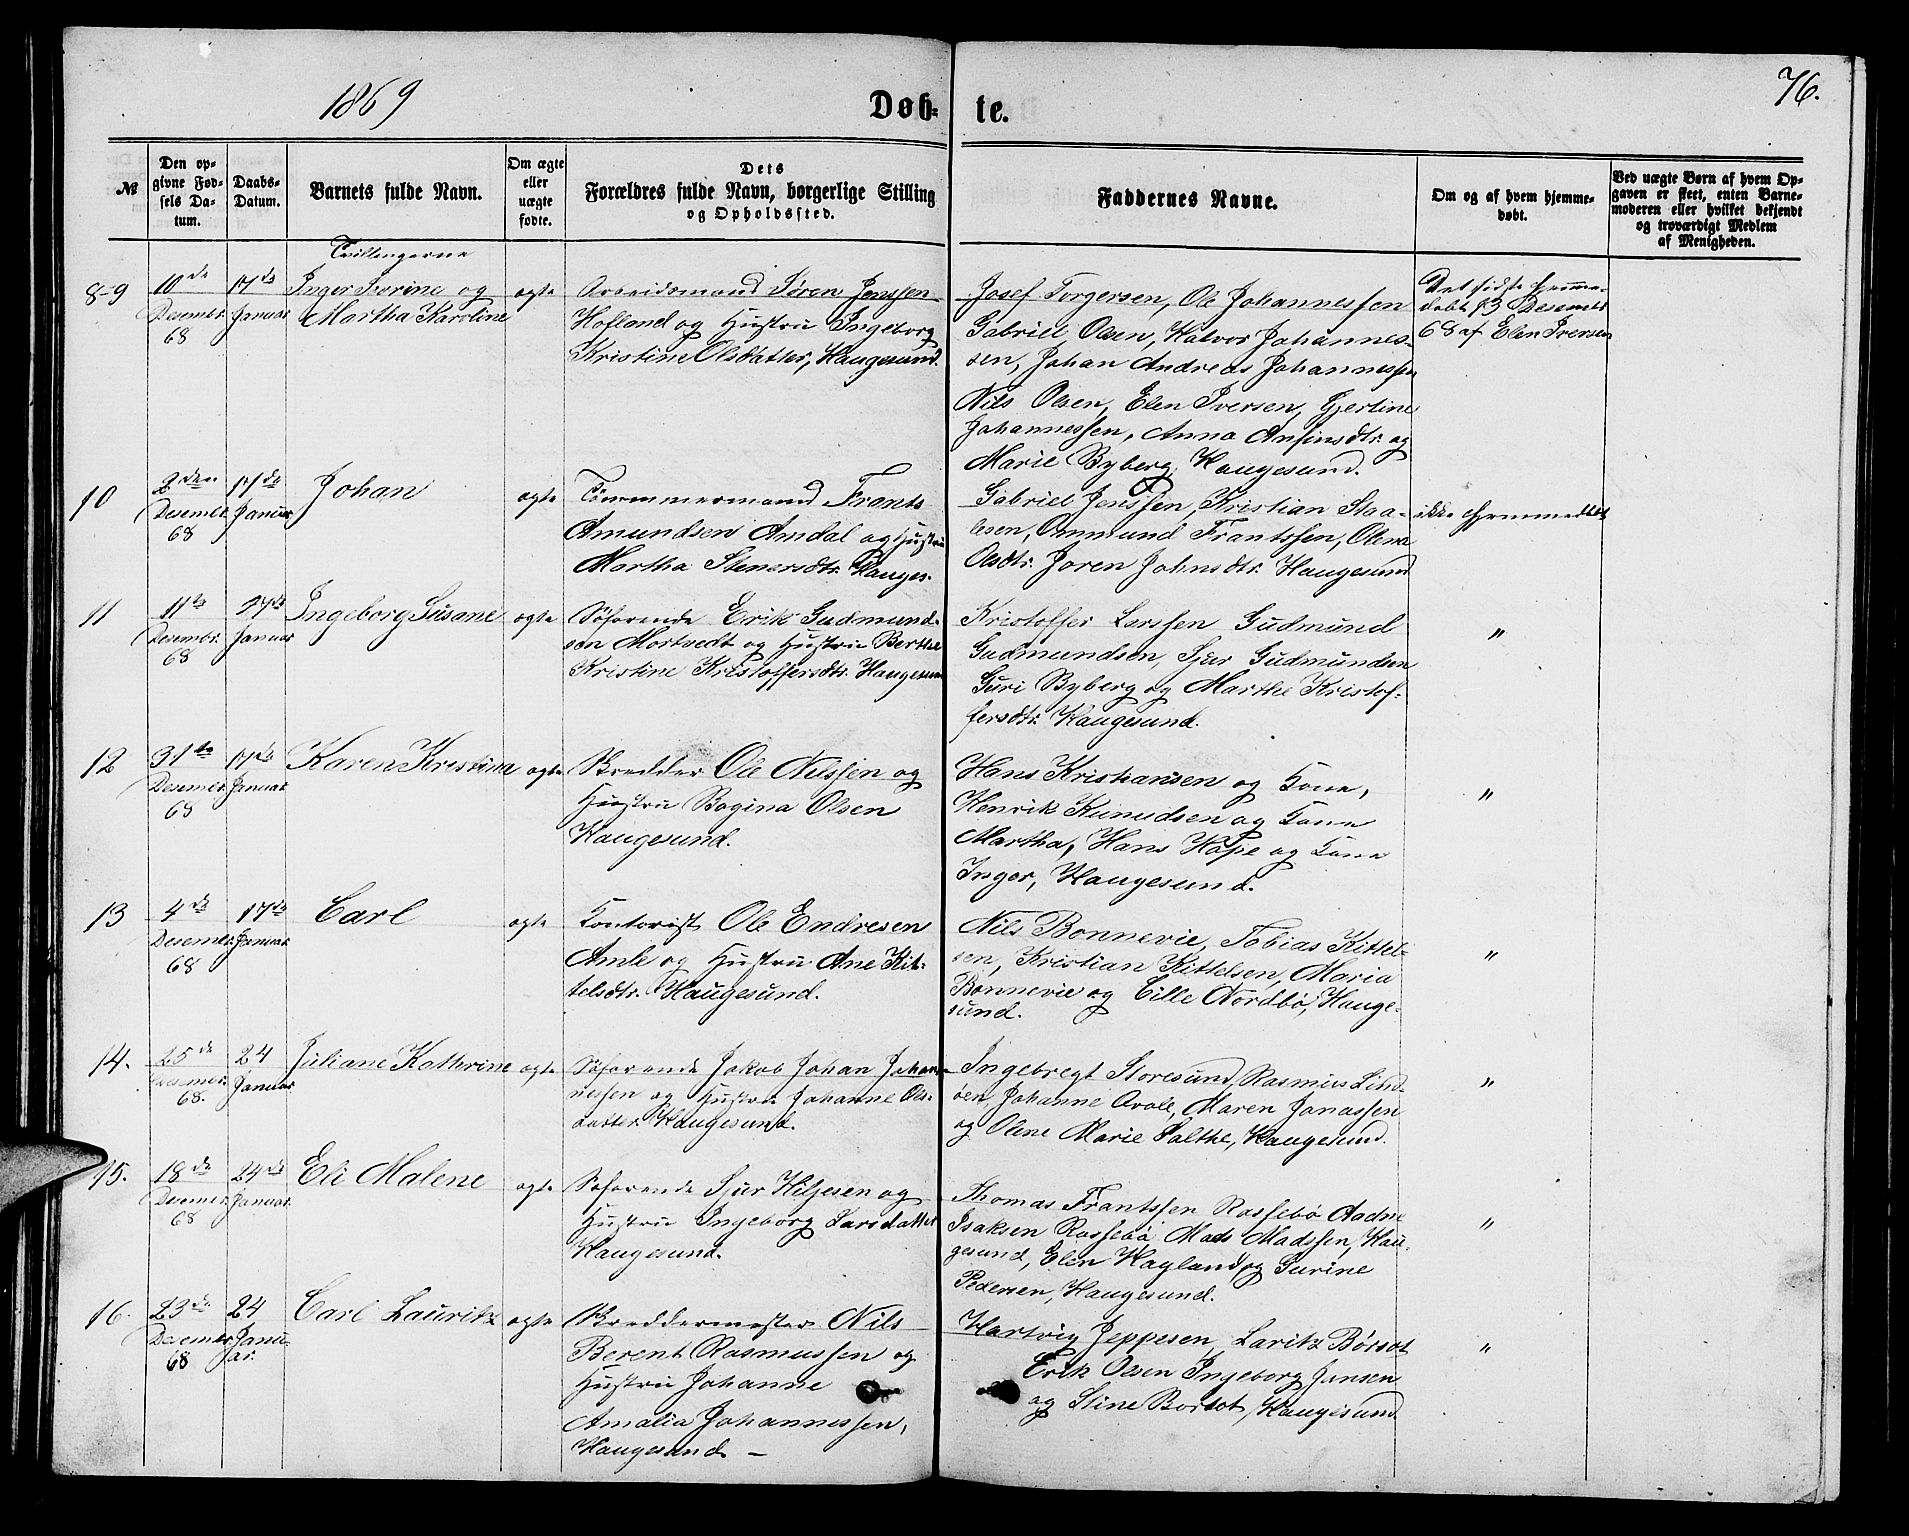 1869
Døb-
te.
76.
№
Den op-
givne Fød-
sels Da-
tum.
Daabs-
Datum.
Barnets fulde Navn.
Om ægte
eller
uægte
fødte.
Dets
Forældres fulde Navn, borgerlige Stilling
og Opholdssted.
Faddernes Navne.
Om og af hvem hjemme-
døbt.
Ved uægte Børn af hvem Op-
gaven er skeet, enten Barne-
moderen eller hvilket bekjendt
og troværdigt Medlem
af Menigheden.
8-9
10de
Desember
68
17de
Januar
Tvillengerne
Inger Iverine og
Martha Karoline
ægte
Arbeidsmand Søren Jenssen
Hofland og Hustru Ingeborg
Kristine Olsdatter, Haugesund.
Josef Torgersen, Ole Johannessen
Gabriel Olsen, Halvor Johannes-
sen, Johan Andreas Johannessen
Nils Olsen, Elen Iversen, Gjertine
Johannessen, Anna Ansinsdtr. og
Marie Byberg, Haugesund.
Det sidste hjemme-
døbt 13 Desember
68 af Elen Iversen
10
2den
Desembr.
68
17de
Januar
Johan
ægte
Tømmermand Frants
Amundsen Amdal og Hustru
Martha Stenersdtr. Hauges.
Gabriel Jenssen, Kristian Staa-
lesen, Ommund Frantssen, Olena
Olsdtr. Joren Johnsdtr. Haugesund
ikke hjemmedøbt
11
11te
Desembr.
68
17de
Januar
Ingeborg Susane
ægte
Søfarende Erik Gudmund-
sen Mortvedt og Hustru Berthe
Kristine Kristoffersdtr. Haugesund
Kristoffer Larssen Gudmund
Gudmundsen, Sjur Gudmundsen
Guri Byberg og Marthe Kristof-
fersdtr. Haugesund.
"
12
31te
Desembr.
68
17de
Januar
Karen Kristina
ægte
Skredder Ole Nilssen og
Hustru Bogina Olsen
Haugesund.
Hans Kristiansen og Kone,
Henrik Knudsen og Kone
Martha, Hans Kope og Kone
Inger, Haugesund.
"
13
4de
Desember
68
17de
Januar
Carl
ægte
Kontorist Ole Endresen
Amle og Hustru Ane Kit-
telsdtr. Haugesund.
Nils Bonnevie, Tobias Kittel-
sen, Kristian Kittelsen, Maria
Bonnevie og Cille Nordbø, Hauge-
sund.
"
14.
25de
Desember
68.
24
Januar
Juliane Kathrine
ægte
Søfarende Jakob Johan Johan-
nessen og Hustru Johanne Ols-
datter Haugesund.
Ingebregt Storesund, Rasmus Lind-
øen, Johanne Avole, Maren Jonassen
og Olene Marie Salthe, Haugesund.
"
15.
18de
Desember
68
24de
Januar.
Eli Malene
ægte
Søfarende Sjur Hiljesen og
Hustru Ingeborg Larsdatter
Haugesund.
Thomas Frantssen Rossebø Aadne
Isaksen Rossebø, Mads Madssen, Hau-
gesund, Elen Hagland og Surine
Pedersen, Haugesund.
"
16.
23de
Desember
68
24
Janu-
ar.
Carl Lauritz
ægte
Skreddermester Nils
Berent Rasmussen og
Hustru Johanne
Amalia Johannessen,
Haugesund. —
Hartvig Jeppesen, Laritz Børsot
Erik Olsen Ingeborg Jansen
og Stine Borsot, Haugesund
"